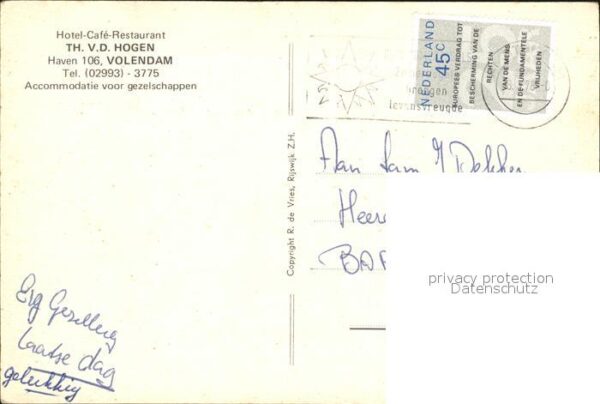 Hotel-Café-Restaurant
TH. V.D. HOGEN
Haven 106, VOLENDAM
Tel. (02993) - 3775
Accommodatie voor gezelschappen
NEDERLAND
45c
EUROPEES VERDRAG TOT
BESCHERMING VAN DE
RECHTEN
VAN DE MENS
EN DE FUNDAMENTELE
VRIJHEDEN
brengen
levensvreugde
Aan fam Dekker
Heer
BAR
Copyright R. de Vries, Rijswijk Z.H.
privacy protection
Datenschutz
Erg Gezellig
laatse dag
gelukkig